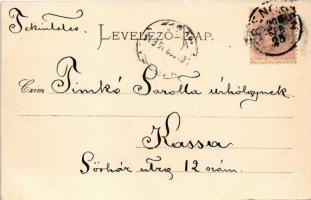 Tekintetes
LEVELEZŐ-LAP.
Czim Timkó Sarolta úrhölgynek
Kassa
Sörház utcza 12 szám.